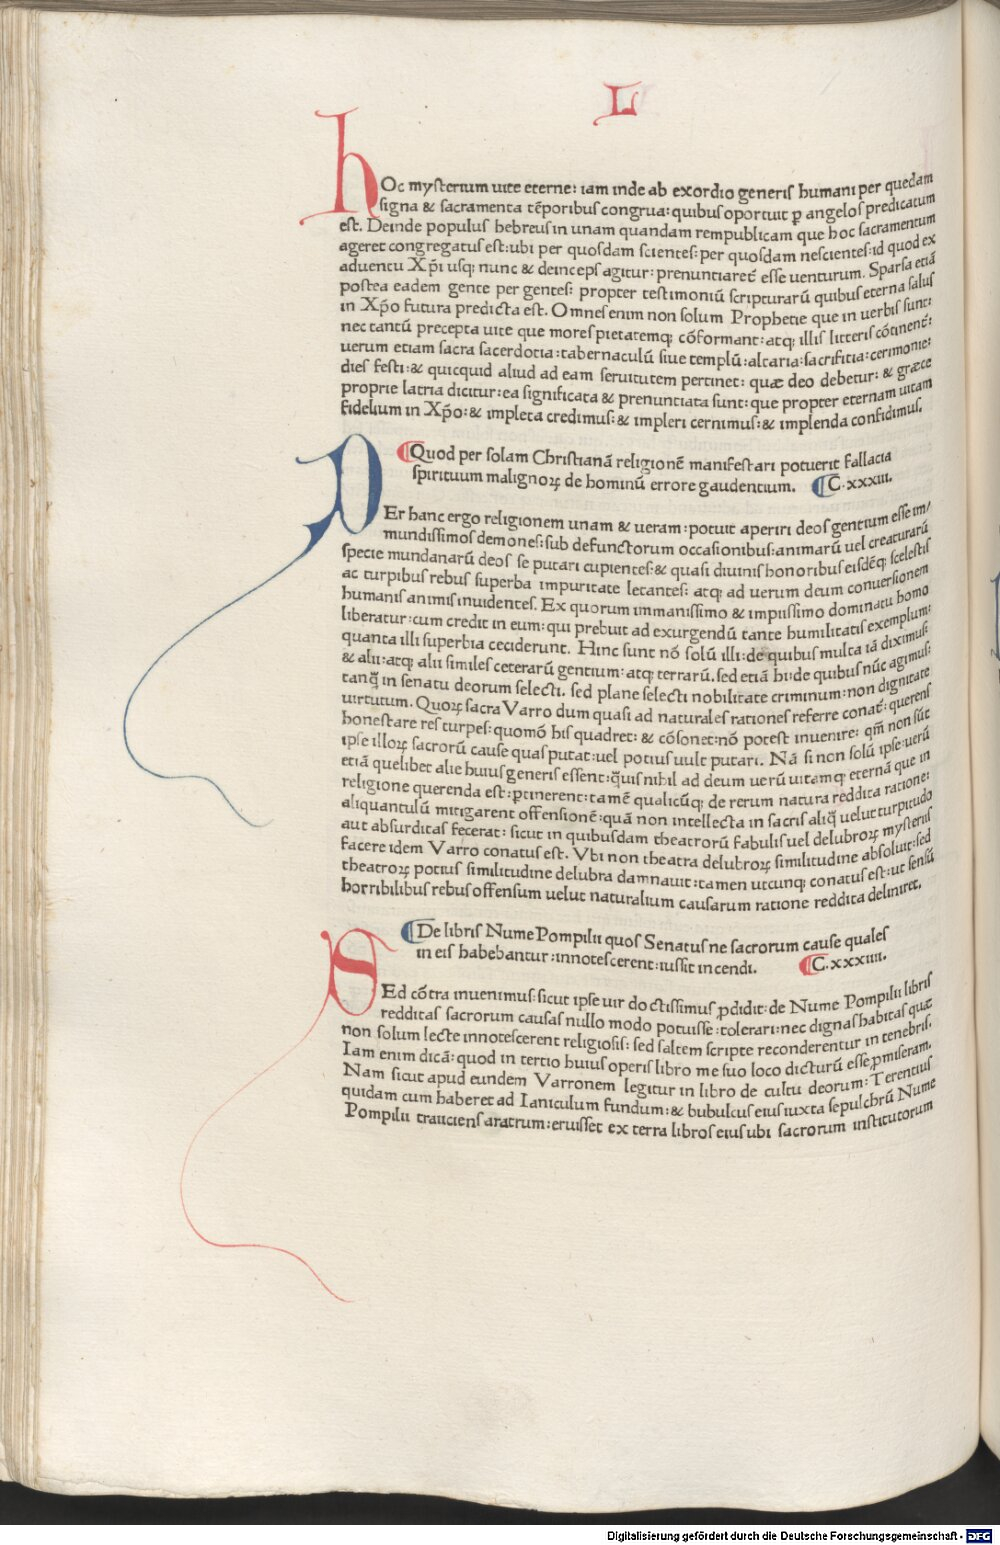 L
hOc mysterium uite eterne: iam inde ab exordio generis humani per quedam
signa & sacramenta tẽporibus congrua: quibus oportuit ꝑ angelos predicatum
est. Deinde populus hebreus in unam quandam rempublicam que hoc sacramentum
ageret congregatus est: ubi per quosdam scientes: per quosdam nescientes: id quod ex
aduentu Xp̃i usq; nunc & deinceps agitur: prenuntiaret᷑ esse uenturum. Sparsa etiã
postea eadem gente per gentes: propter testimoniũ scripturarũ quibus eterna salus
in Xp̃o futura predicta est. Omnes enim non solum Prophetie que in uerbis sunt:
nec tantũ precepta uite que mores pietatemq; cõformant: atq; illis litteris cõtinent᷑:
uerum etiam sacra sacerdotia: tabernaculũ siue templũ: altaria: sacrifitia: cerimonie:
dies festi: & quicquid aliud ad eam seruitutem pertinet: quæ deo debetur: & græce
proprie latria dicitur: ea significata & prenuntiata sunt: que propter eternam uitam
fidelium in Xp̃o: & impleta credimus: & impleri cernimus: & implenda confidimus.
¶Quod per solam Christianã religionẽ manifestari potuerit fallacia
spirituum malignoꝝ de hominũ errore gaudentium. ¶C. xxxiii.
PEr hanc ergo religionem unam & ueram: potuit aperiri deos gentium esse im/
mundissimos demones: sub defunctorum occasionibus: animarũ uel creaturarũ
specie mundanarũ deos se putari cupientes: & quasi diuinis honoribus eisdẽq; scelestis
ac turpibus rebus superba impuritate letantes: atq; ad uerum deum conuersionem
humanis animis inuidentes. Ex quorum immanissimo & impiissimo dominatu homo
liberatur: cum credit in eum: qui prebuit ad exurgendũ tante humilitatis exemplum:
quanta illi superbia ceciderunt. Hinc sunt nõ solũ illi: de quibus multa iã diximus:
& alii: atq; alii similes ceterarũ gentium: atq; terrarũ. sed etiã hi: de quibus nũc agimus:
tanq̃ in senatu deorum selecti. sed plane selecti nobilitate criminum: non dignitate
uirtutum. Quoꝝ sacra Varro dum quasi ad naturales rationes referre conat᷑: querens
honestare res turpes: quomõ his quadret: & cõsonet: nõ potest inuenire: qm̃ non sũt
ipse illoꝝ sacrorũ cause quas putat: uel potius uult putari. Nã si non solũ ipse: uerũ
etiã quelibet alie huius generis essent: q̃uis nihil ad deum uerũ uitamq; eternã que in
religione querenda est: ꝑtinerent: tamẽ qualicũq; de rerum natura reddita ratione:
aliquantulũ mitigarent offensionẽ: quã non intellecta in sacris aliq̃ uelut turpitudo
aut absurditas fecerat: sicut in quibusdam theatrorũ fabulis uel delubroꝝ mysteriis
facere idem Varro conatus est. Vbi non theatra delubroꝝ similitudine absoluit: sed
theatroꝝ potius similitudine delubra damnauit: tamen utcunq; conatus est: ut sensũ
horribilibus rebus offensum uelut naturalium causarum ratione reddita deliniret.
¶De libris Nume Pompilii quos Senatus ne sacrorum cause quales
in eis habebantur: innotescerent: iussit incendi. ¶C. xxxiiii.
SEd cõtra inuenimus: sicut ipse uir doctissimus ꝓdidit: de Nume Pompilii libris
redditas sacrorum causas nullo modo potuisse: tolerari: nec dignas habitas quæ
non solum lecte innotescerent religiosis: sed saltem scripte reconderentur in tenebris.
Iam enim dicã: quod in tertio huius operis libro me suo loco dicturũ esse ꝓmiseram.
Nam sicut apud eundem Varronem legitur in libro de cultu deorum: Terentius
quidam cum haberet ad Ianiculum fundum: & bubulcus eius iuxta sepulchrũ Nume
Pompilii traiiciens aratrum: eruisset ex terra libros eius ubi sacrorum institutorum
Digitalisierung gefördert durch die Deutsche Forschungsgemeinschaft - DFG